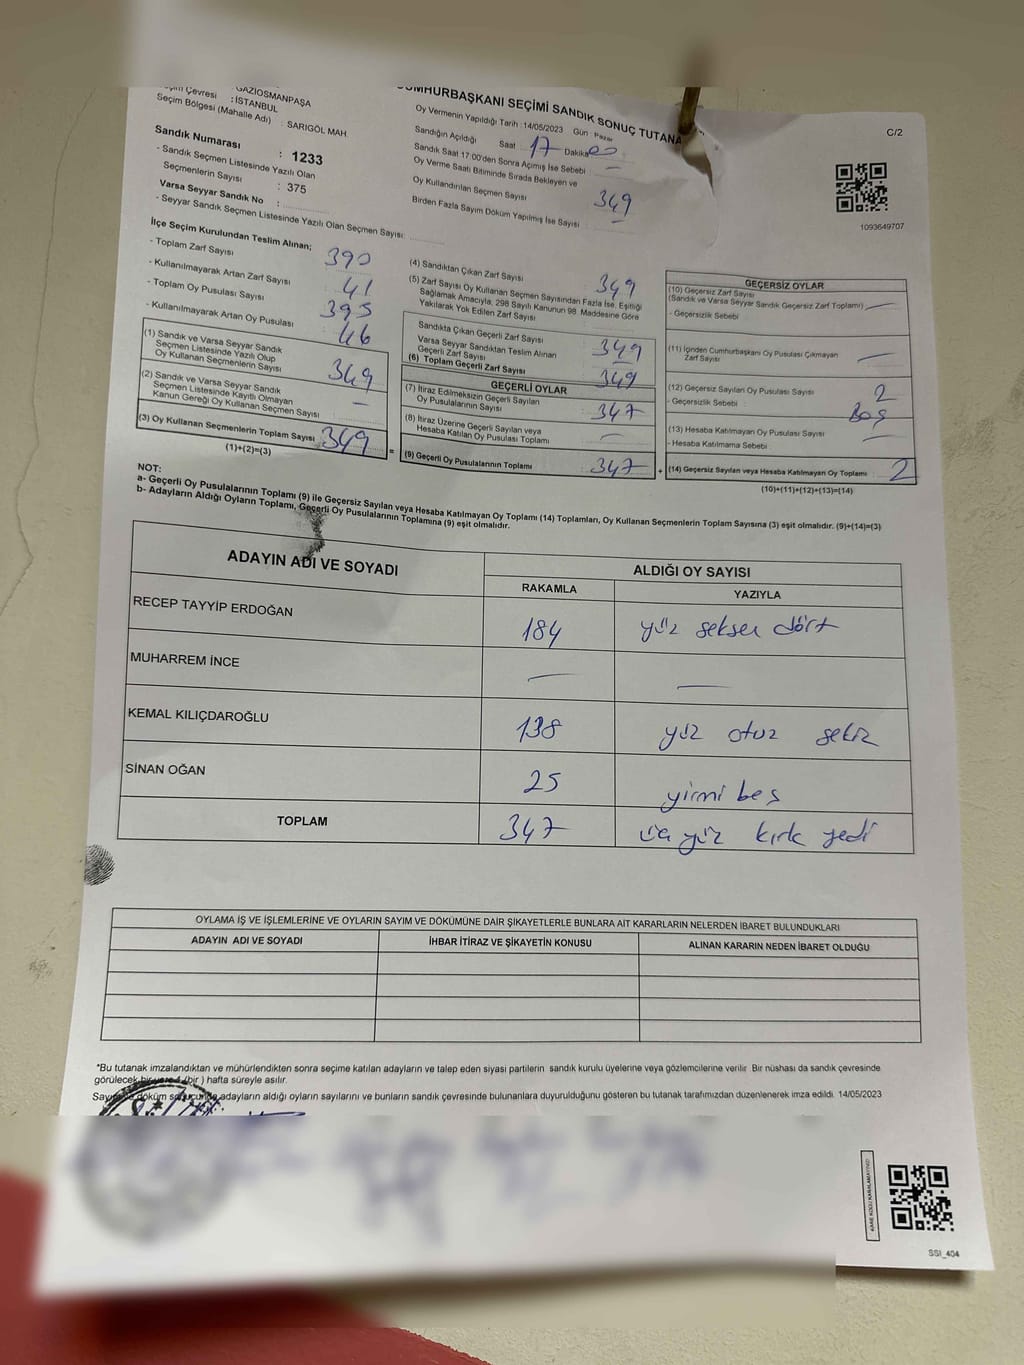 Seçim Çevresi : İSTANBUL
GAZİOSMANPAŞA
Seçim Bölgesi (Mahalle Adı) : SARIGÖL MAH.
Sandık Numarası : 1233
- Sandık Seçmen Listesinde Yazılı Olan
Seçmenlerin Sayısı : 375
Varsa Seyyar Sandık No :
- Seyyar Sandık Seçmen Listesinde Yazılı Olan Seçmen Sayısı:
CUMHURBAŞKANI SEÇİMİ SANDIK SONUÇ TUTANA
Oy Vermenin Yapıldığı Tarih : 14/05/2023 Gün : Pazar
Sandığın Açıldığı Saat 17 Dakika 00
Sandık Saat 17:00'den Sonra Açılmış İse Sebebi —
Oy Verme Saati Bitiminde Sırada Bekleyen ve
Oy Kullandırılan Seçmen Sayısı 349
Birden Fazla Sayım Döküm Yapılmış İse Sayısı —
C/2
1093649707
İlçe Seçim Kurulundan Teslim Alınan;
- Toplam Zarf Sayısı 390
- Kullanılmayarak Artan Zarf Sayısı 41
- Toplam Oy Pusulası Sayısı 395
- Kullanılmayarak Artan Oy Pusulası 46
(1) Sandık ve Varsa Seyyar Sandık
Seçmen Listesinde Yazılı Olup
Oy Kullanan Seçmenlerin Sayısı 349
(2) Sandık ve Varsa Seyyar Sandık
Seçmen Listesinde Kayıtlı Olmayan
Kanun Gereği Oy Kullanan Seçmen Sayısı —
(3) Oy Kullanan Seçmenlerin Toplam Sayısı 349
(1)+(2)=(3)
=
(4) Sandıktan Çıkan Zarf Sayısı 349
(5) Zarf Sayısı Oy Kullanan Seçmen Sayısından Fazla İse, Eşitliği
Sağlamak Amacıyla, 298 Sayılı Kanunun 98. Maddesine Göre
Yakılarak Yok Edilen Zarf Sayısı
Sandıkta Çıkan Geçerli Zarf Sayısı 349
Varsa Seyyar Sandıktan Teslim Alınan
Geçerli Zarf Sayısı
(6) Toplam Geçerli Zarf Sayısı 349
GEÇERLİ OYLAR
(7) İtiraz Edilmeksizin Geçerli Sayılan
Oy Pusulalarının Sayısı 347
(8) İtiraz Üzerine Geçerli Sayılan veya
Hesaba Katılan Oy Pusulası Toplamı —
(9) Geçerli Oy Pusulalarının Toplamı 347
+
GEÇERSİZ OYLAR
(10) Geçersiz Zarf Sayısı
(Sandık ve Varsa Seyyar Sandık Geçersiz Zarf Toplamı) —
- Geçersizlik Sebebi
(11) İçinden Cumhurbaşkanı Oy Pusulası Çıkmayan
Zarf Sayısı —
(12) Geçersiz Sayılan Oy Pusulası Sayısı 2
- Geçersizlik Sebebi Boş
(13) Hesaba Katılmayan Oy Pusulası Sayısı —
- Hesaba Katılmama Sebebi
(14) Geçersiz Sayılan veya Hesaba Katılmayan Oy Toplamı 2
(10)+(11)+(12)+(13)=(14)
NOT:
a- Geçerli Oy Pusulalarının Toplamı (9) ile Geçersiz Sayılan veya Hesaba Katılmayan Oy Toplamı (14) Toplamları, Oy Kullanan Seçmenlerin Toplam Sayısına (3) eşit olmalıdır. (9)+(14)=(3)
b- Adayların Aldığı Oyların Toplamı, Geçerli Oy Pusulalarının Toplamına (9) eşit olmalıdır.
ADAYIN ADI VE SOYADI ALDIĞI OY SAYISI
RAKAMLA YAZIYLA
RECEP TAYYİP ERDOĞAN 184 yüz seksen dört
MUHARREM İNCE — —
KEMAL KILIÇDAROĞLU 138 yüz otuz sekiz
SİNAN OĞAN 25 yirmi beş
TOPLAM 347 üç yüz kırk yedi
OYLAMA İŞ VE İŞLEMLERİNE VE OYLARIN SAYIM VE DÖKÜMÜNE DAİR ŞİKAYETLERLE BUNLARA AİT KARARLARIN NELERDEN İBARET BULUNDUKLARI
ADAYIN ADI VE SOYADI İHBAR İTİRAZ VE ŞİKAYETİN KONUSU ALINAN KARARIN NEDEN İBARET OLDUĞU
*Bu tutanak imzalandıktan ve mühürlendikten sonra seçime katılan adayların ve talep eden siyasi partilerin sandık kurulu üyelerine veya gözlemcilerine verilir. Bir nüshası da sandık çevresinde
görülecek bir yere 1 (bir) hafta süreyle asılır.
Sayım ve döküm sonucunda adayların aldığı oyların sayılarını ve bunların sandık çevresinde bulunanlara duyurulduğunu gösteren bu tutanak tarafımızdan düzenlenerek imza edildi. 14/05/2023
SSI_404